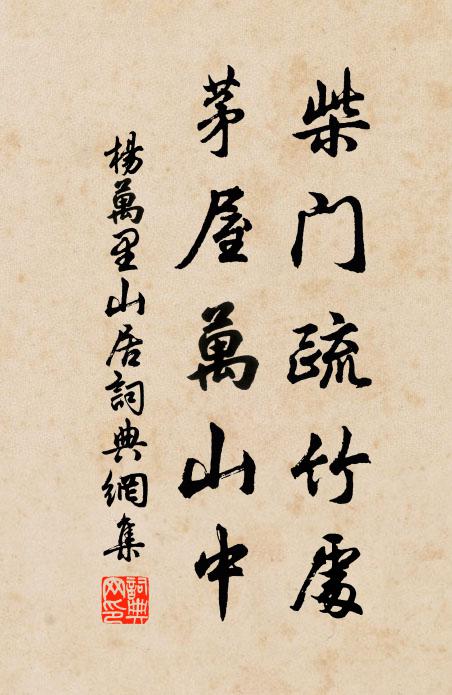 柴门疏竹處
茅屋萬山中
楊萬里山居詞典網集
詞典網印